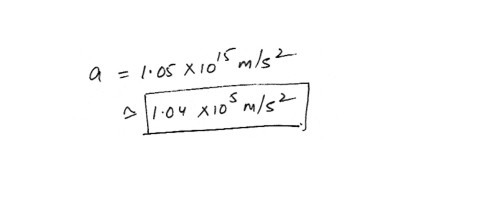 a = 1.05 × 10¹⁵ m/s²
≃ 1.04 × 10⁵ m/s²